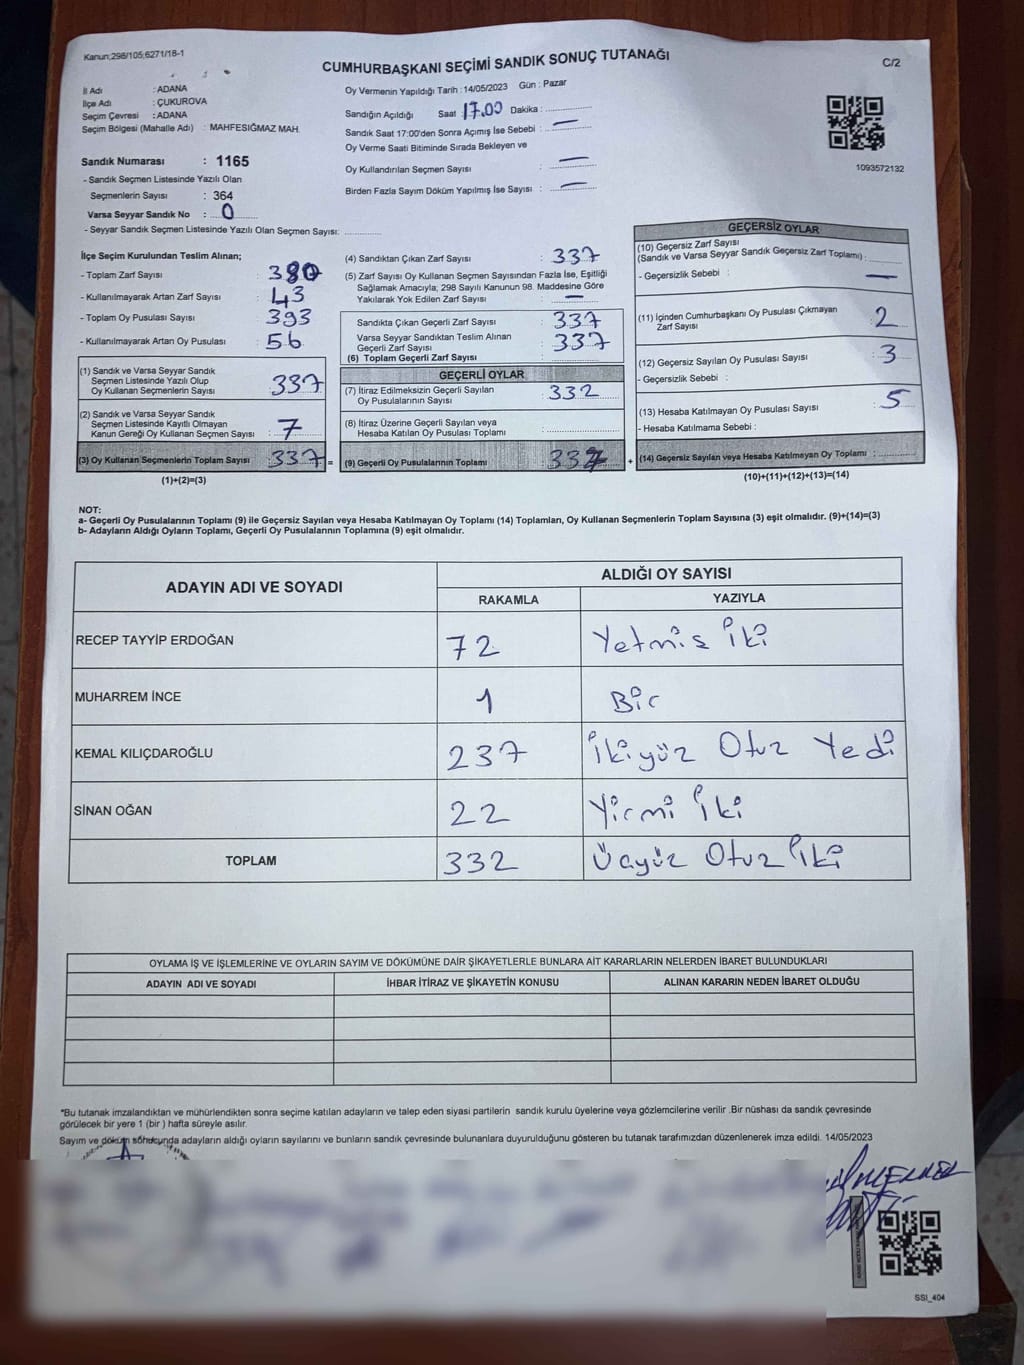 Kanun;298/105;6271/18-1
CUMHURBAŞKANI SEÇİMİ SANDIK SONUÇ TUTANAĞI
C/2
İl Adı : ADANA
İlçe Adı : ÇUKUROVA
Seçim Çevresi : ADANA
Seçim Bölgesi (Mahalle Adı) : MAHFESIĞMAZ MAH.
Sandık Numarası : 1165
- Sandık Seçmen Listesinde Yazılı Olan
Seçmenlerin Sayısı : 364
Varsa Seyyar Sandık No : 0
- Seyyar Sandık Seçmen Listesinde Yazılı Olan Seçmen Sayısı:
Oy Vermenin Yapıldığı Tarih : 14/05/2023 Gün : Pazar
Sandığın Açıldığı Saat : 17.00 Dakika : —
Sandık Saat 17:00'den Sonra Açımış İse Sebebi : —
Oy Verme Saati Bitiminde Sırada Bekleyen ve
Oy Kullandırılan Seçmen Sayısı : —
Birden Fazla Sayım Döküm Yapılmış İse Sayısı : —
1093572132
İlçe Seçim Kurulundan Teslim Alınan;
- Toplam Zarf Sayısı : 380
- Kullanılmayarak Artan Zarf Sayısı : 43
- Toplam Oy Pusulası Sayısı : 393
- Kullanılmayarak Artan Oy Pusulası : 56
(1) Sandık ve Varsa Seyyar Sandık
Seçmen Listesinde Yazılı Olup
Oy Kullanan Seçmenlerin Sayısı : 337
(2) Sandık ve Varsa Seyyar Sandık
Seçmen Listesinde Kayıtlı Olmayan
Kanun Gereği Oy Kullanan Seçmen Sayısı : 7
(3) Oy Kullanan Seçmenlerin Toplam Sayısı : 337 =
(1)+(2)=(3)
(4) Sandıktan Çıkan Zarf Sayısı : 337
(5) Zarf Sayısı Oy Kullanan Seçmen Sayısından Fazla İse, Eşitliği
Sağlamak Amacıyla; 298 Sayılı Kanunun 98. Maddesine Göre
Yakılarak Yok Edilen Zarf Sayısı : —
Sandıkta Çıkan Geçerli Zarf Sayısı : 337
Varsa Seyyar Sandıktan Teslim Alınan
Geçerli Zarf Sayısı : 337
(6) Toplam Geçerli Zarf Sayısı :
GEÇERLİ OYLAR
(7) İtiraz Edilmeksizin Geçerli Sayılan
Oy Pusulalarının Sayısı : 332
(8) İtiraz Üzerine Geçerli Sayılan veya
Hesaba Katılan Oy Pusulası Toplamı :
(9) Geçerli Oy Pusulalarının Toplamı : +
GEÇERSİZ OYLAR
(10) Geçersiz Zarf Sayısı
(Sandık ve Varsa Seyyar Sandık Geçersiz Zarf Toplamı) :
- Geçersizlik Sebebi : —
(11) İçinden Cumhurbaşkanı Oy Pusulası Çıkmayan
Zarf Sayısı : 2
(12) Geçersiz Sayılan Oy Pusulası Sayısı : 3
- Geçersizlik Sebebi :
(13) Hesaba Katılmayan Oy Pusulası Sayısı : 5
- Hesaba Katılmama Sebebi :
(14) Geçersiz Sayılan veya Hesaba Katılmayan Oy Toplamı :
(10)+(11)+(12)+(13)=(14)
NOT:
a- Geçerli Oy Pusulalarının Toplamı (9) ile Geçersiz Sayılan veya Hesaba Katılmayan Oy Toplamı (14) Toplamları, Oy Kullanan Seçmenlerin Toplam Sayısına (3) eşit olmalıdır. (9)+(14)=(3)
b- Adayların Aldığı Oyların Toplamı, Geçerli Oy Pusulalarının Toplamına (9) eşit olmalıdır.
ADAYIN ADI VE SOYADI
ALDIĞI OY SAYISI
RAKAMLA YAZIYLA
RECEP TAYYİP ERDOĞAN 72 Yetmiş iki
MUHARREM İNCE 1 Bir
KEMAL KILIÇDAROĞLU 237 İkiyüz Otuz Yedi
SİNAN OĞAN 22 Yirmi iki
TOPLAM 332 Üçyüz Otuz iki
OYLAMA İŞ VE İŞLEMLERİNE VE OYLARIN SAYIM VE DÖKÜMÜNE DAİR ŞİKAYETLERLE BUNLARA AİT KARARLARIN NELERDEN İBARET BULUNDUKLARI
ADAYIN ADI VE SOYADI İHBAR İTİRAZ VE ŞİKAYETİN KONUSU ALINAN KARARIN NEDEN İBARET OLDUĞU
*Bu tutanak imzalandıktan ve mühürlendikten sonra seçime katılan adayların ve talep eden siyasi partilerin sandık kurulu üyelerine veya gözlemcilerine verilir .Bir nüshası da sandık çevresinde
görülecek bir yere 1 (bir ) hafta süreyle asılır.
Sayım ve döküm sonucunda adayların aldığı oyların sayılarını ve bunların sandık çevresinde bulunanlara duyurulduğunu gösteren bu tutanak tarafımızdan düzenlenerek imza edildi. 14/05/2023
SSI_404